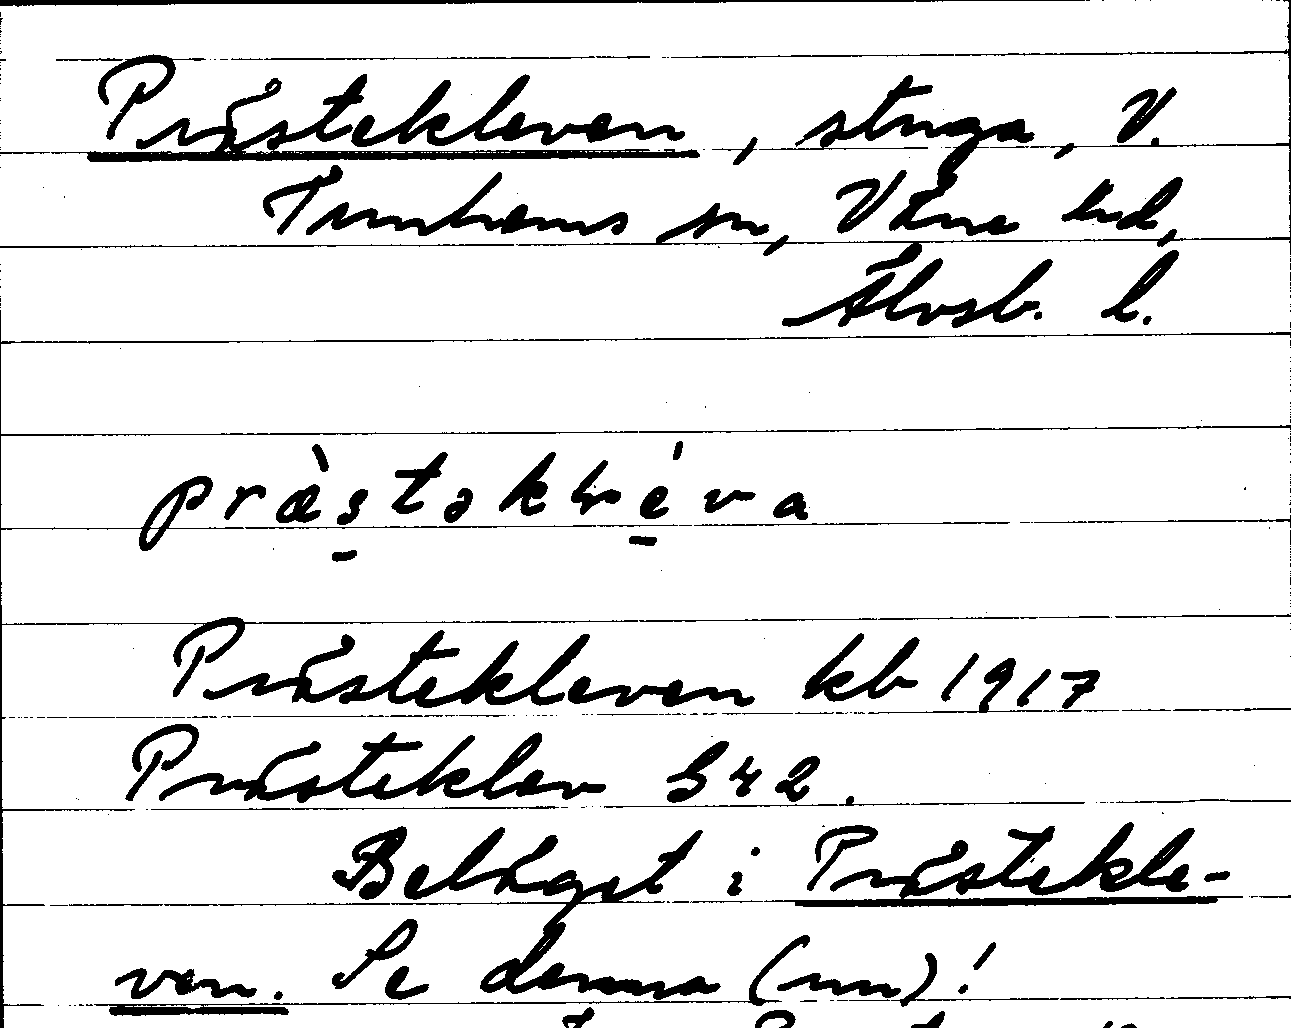 Prästekleven, stuga, V.
Tunhems sn, Väne hd,
Älvsb. l.
præ̀stəkléva
Prästekleven kb 1917
Prästeklev S42.
Beläget i Prästekle-
ven. Se denna (nn)!